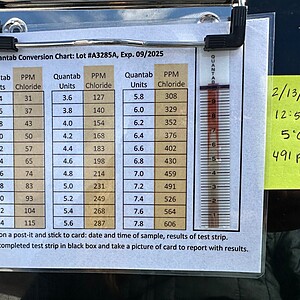 antab Conversion Chart: Lot #A3285A, Exp. 09/2025
antab PPM Quantab PPM Quantab PPM
Units Chloride Units Chloride Units Chloride
31 3.6 127 5.8 308
37 3.8 140 6.0 329
43 4.0 154 6.2 352
50 4.2 168 6.4 376
57 4.4 183 6.6 402
65 4.6 198 6.8 430
74 4.8 214 7.0 459
83 5.0 231 7.2 491
93 5.2 249 7.4 526
104 5.4 268 7.6 564
115 5.6 287 7.8 606
on a post-it and stick to card: date and time of sample, results of test strip.
completed test strip in black box and take a picture of card to report with results.
QUANTAB
2/13/
12:5
5°
491 p